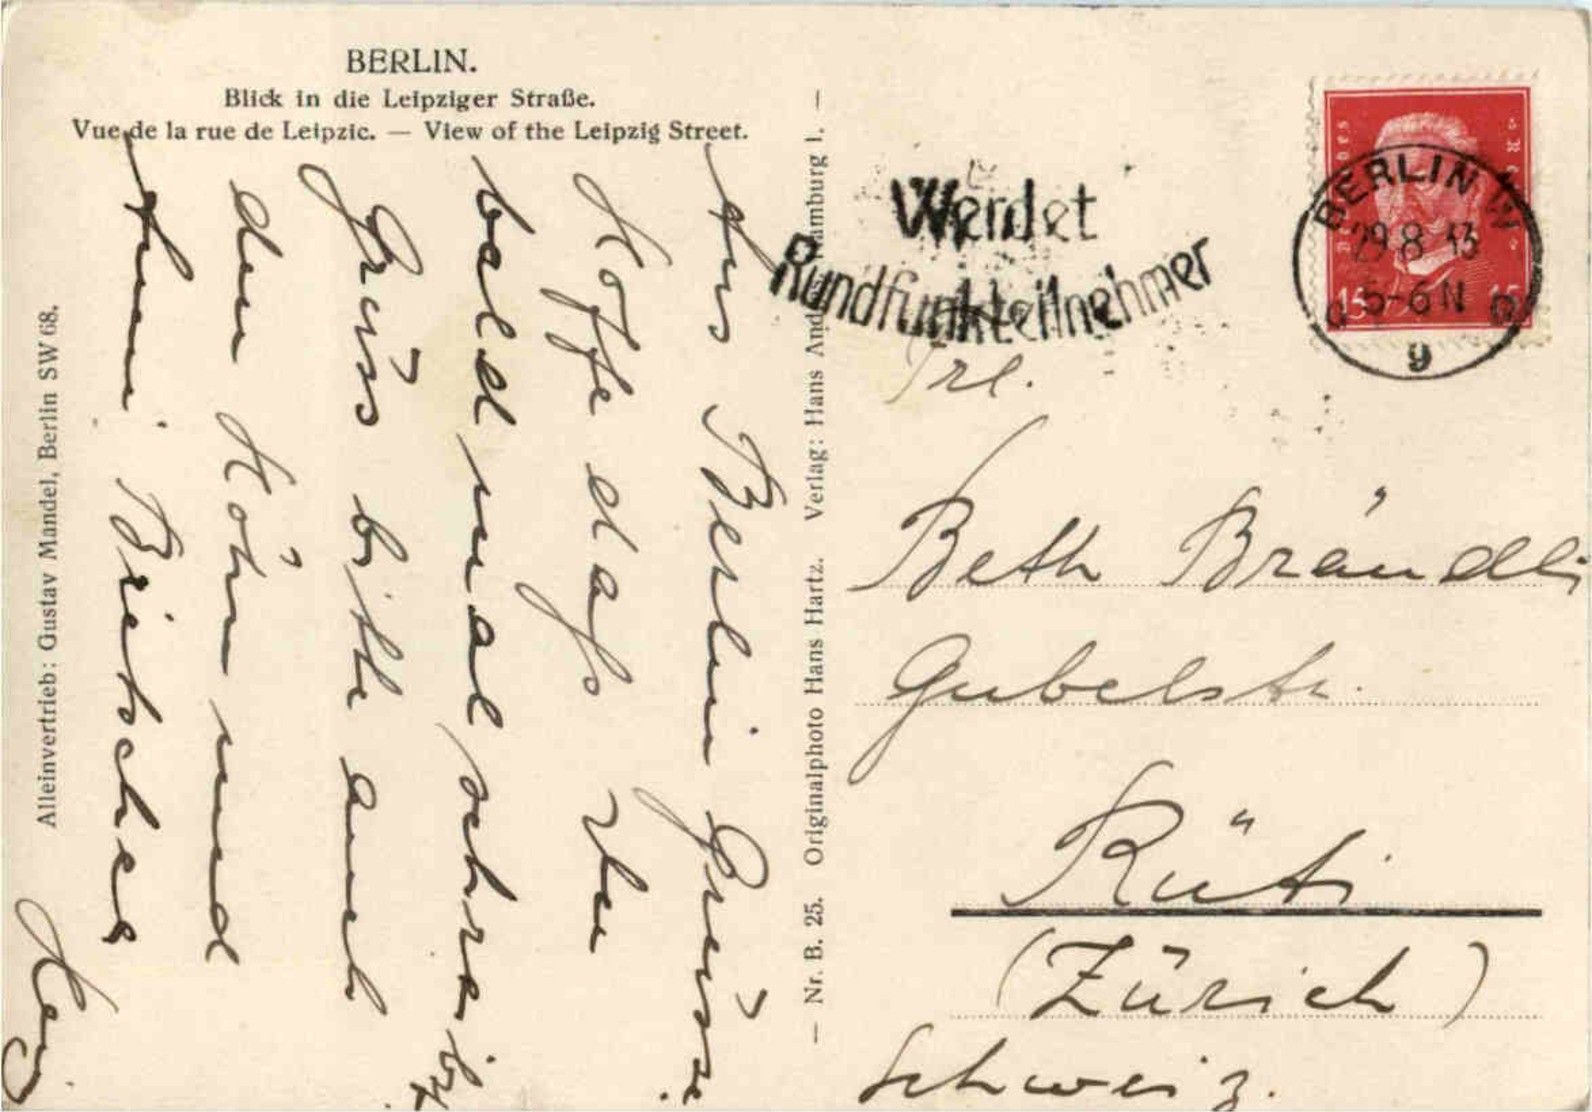 BERLIN.
Blick in die Leipziger Straße.
Vue de la rue de Leipzic. — View of the Leipzig Street.
Aus Berlin Grüsse
Hoffe dass Du
bald mal schreibst
Gruss bitte auch
den
und
Alleinvertrieb: Gustav Mandel, Berlin SW 68.
— Nr. B. 25. Originalphoto Hans Hartz. Verlag: Hans And Hamburg 1. —
Werdet
Rundfunkteilnehmer
BERLIN W
29.8.
5-6 N
9
15 15
Frl.
Beth Brändli
Gubelstr.
Rüti
(Zürich)
Schweiz.